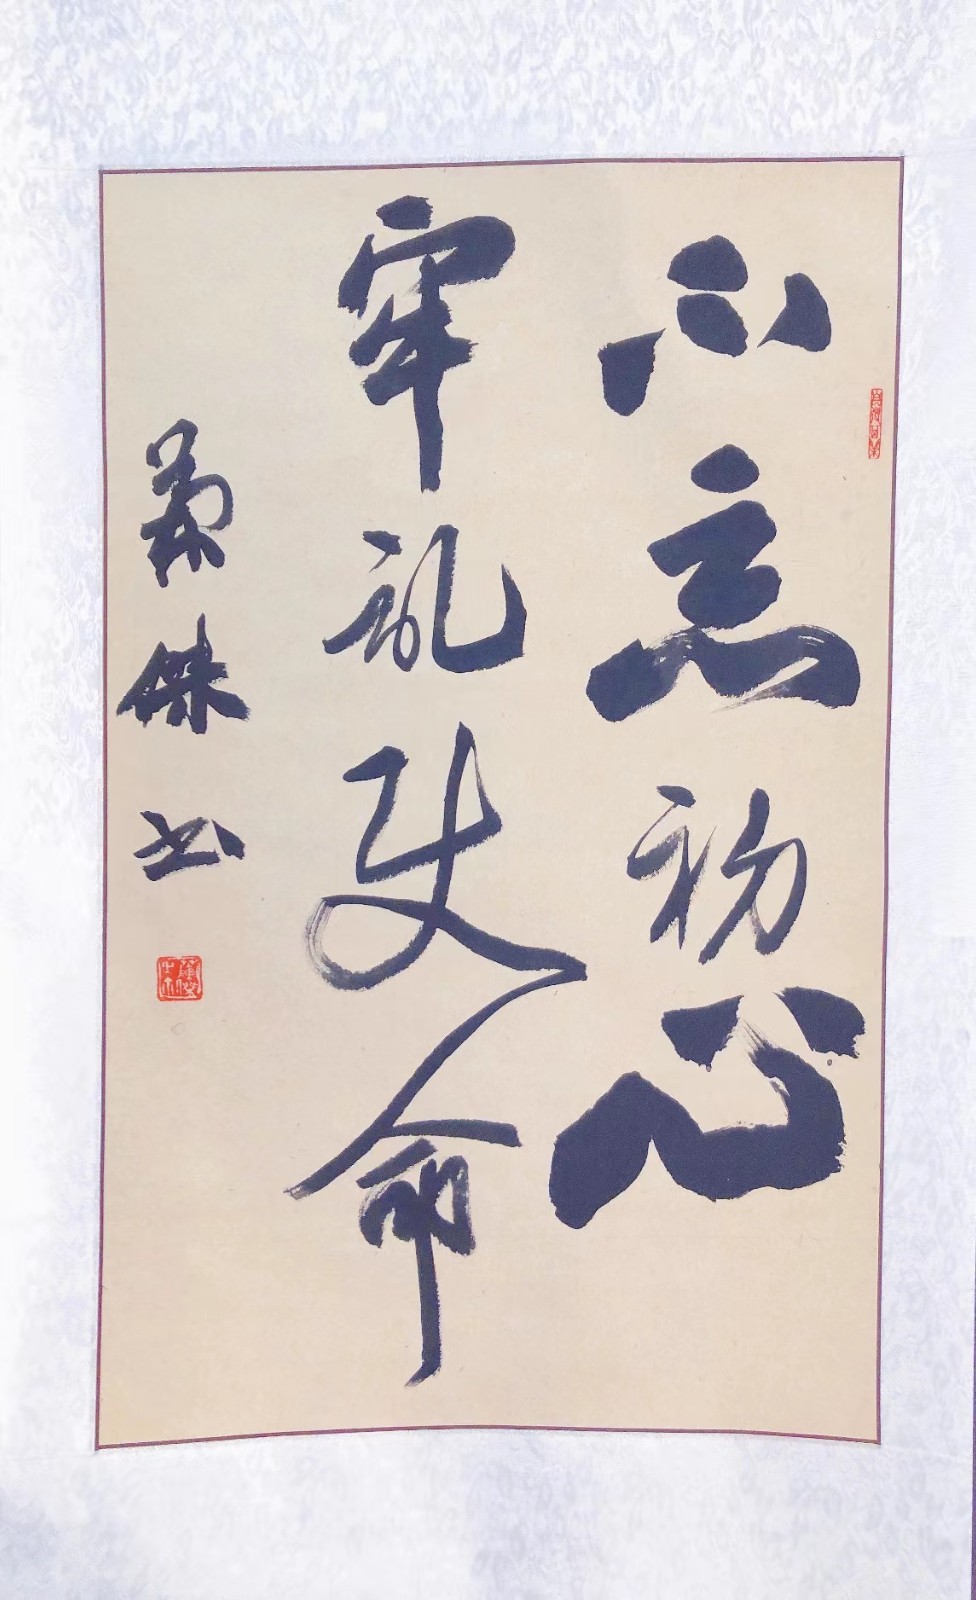 不忘初心
牢记使命
萧傑书